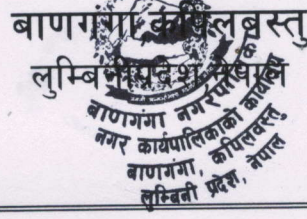 बाणगंगा कपिलवस्तु
लुम्बिनी प्रदेश नेपाल
बाणगंगा नगरपालिका
नगर कार्यपालिकाको कार्यालय
बाणगंगा, कपिलवस्तु
लुम्बिनी प्रदेश, नेपाल